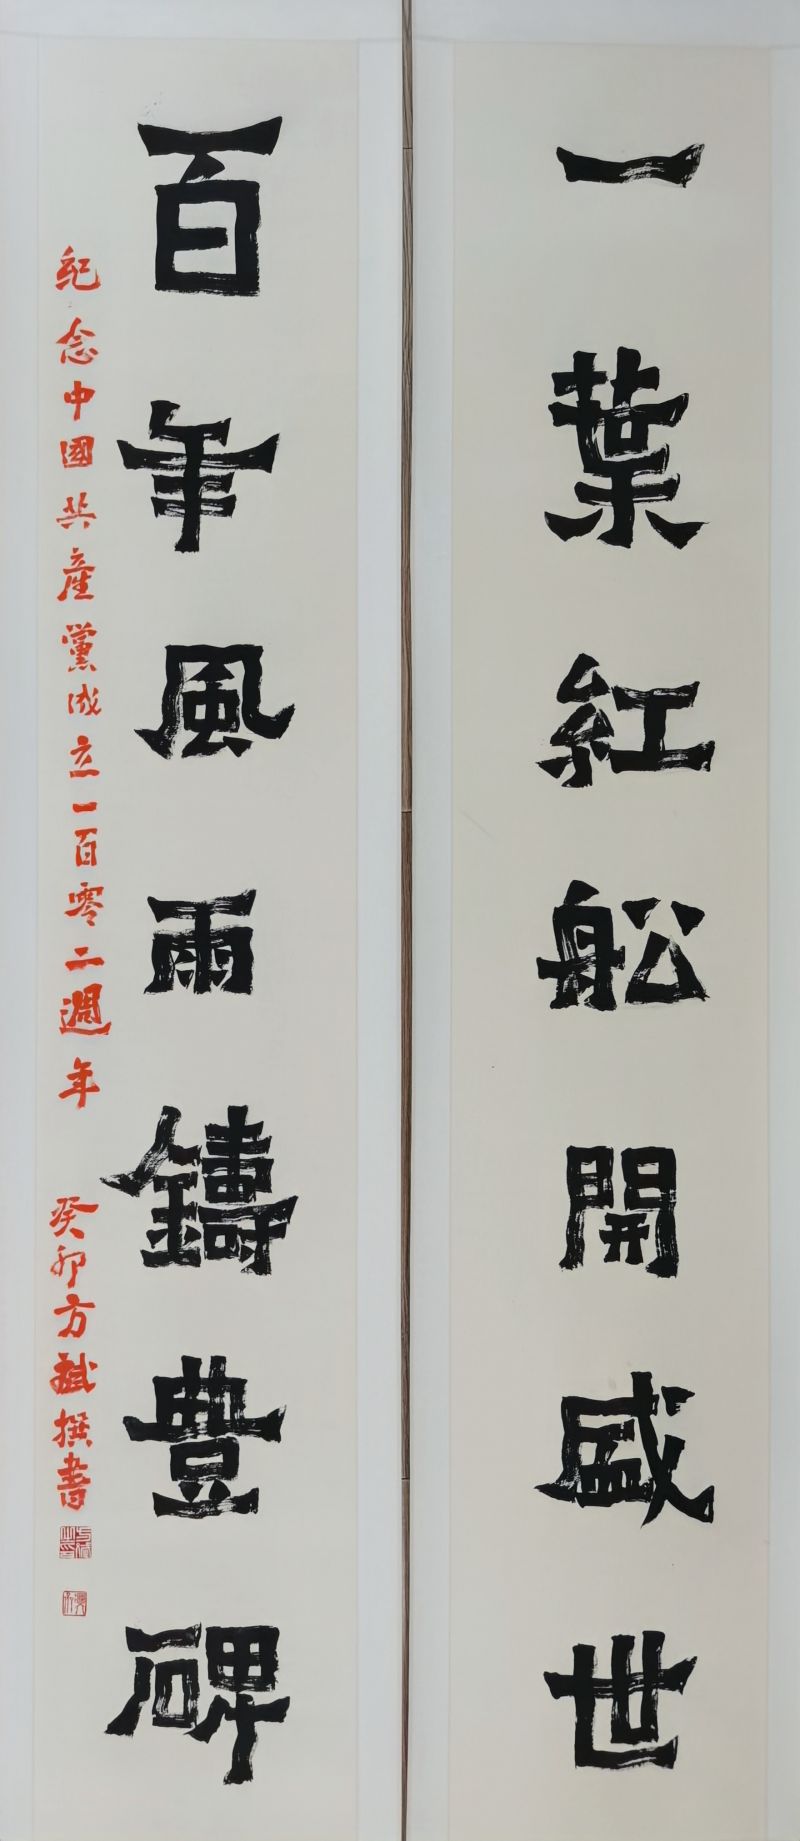 一葉紅船開盛世
百年風雨鑄豐碑
紀念中國共產黨成立一百零二週年 癸卯方斌撰書